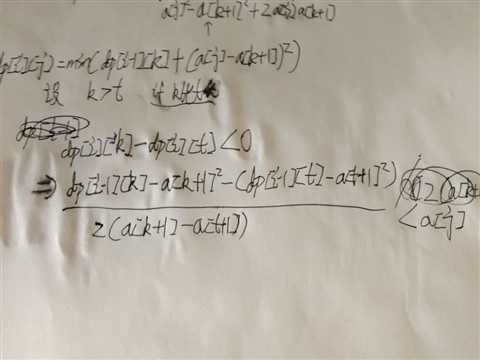 a[j]²-a[k+1]²+2a[j]a[k+1]
↑
dp[i][j]=min(dp[i-1][k]+(a[j]-a[k+1])²)
设 k>t 若 k优于t
dp[i][k]-dp[i][t]<0
⇒ dp[i-1][k]-a[k+1]²-(dp[i-1][t]-a[t+1]²)
2(a[k+1]-a[t+1])
<a[j]